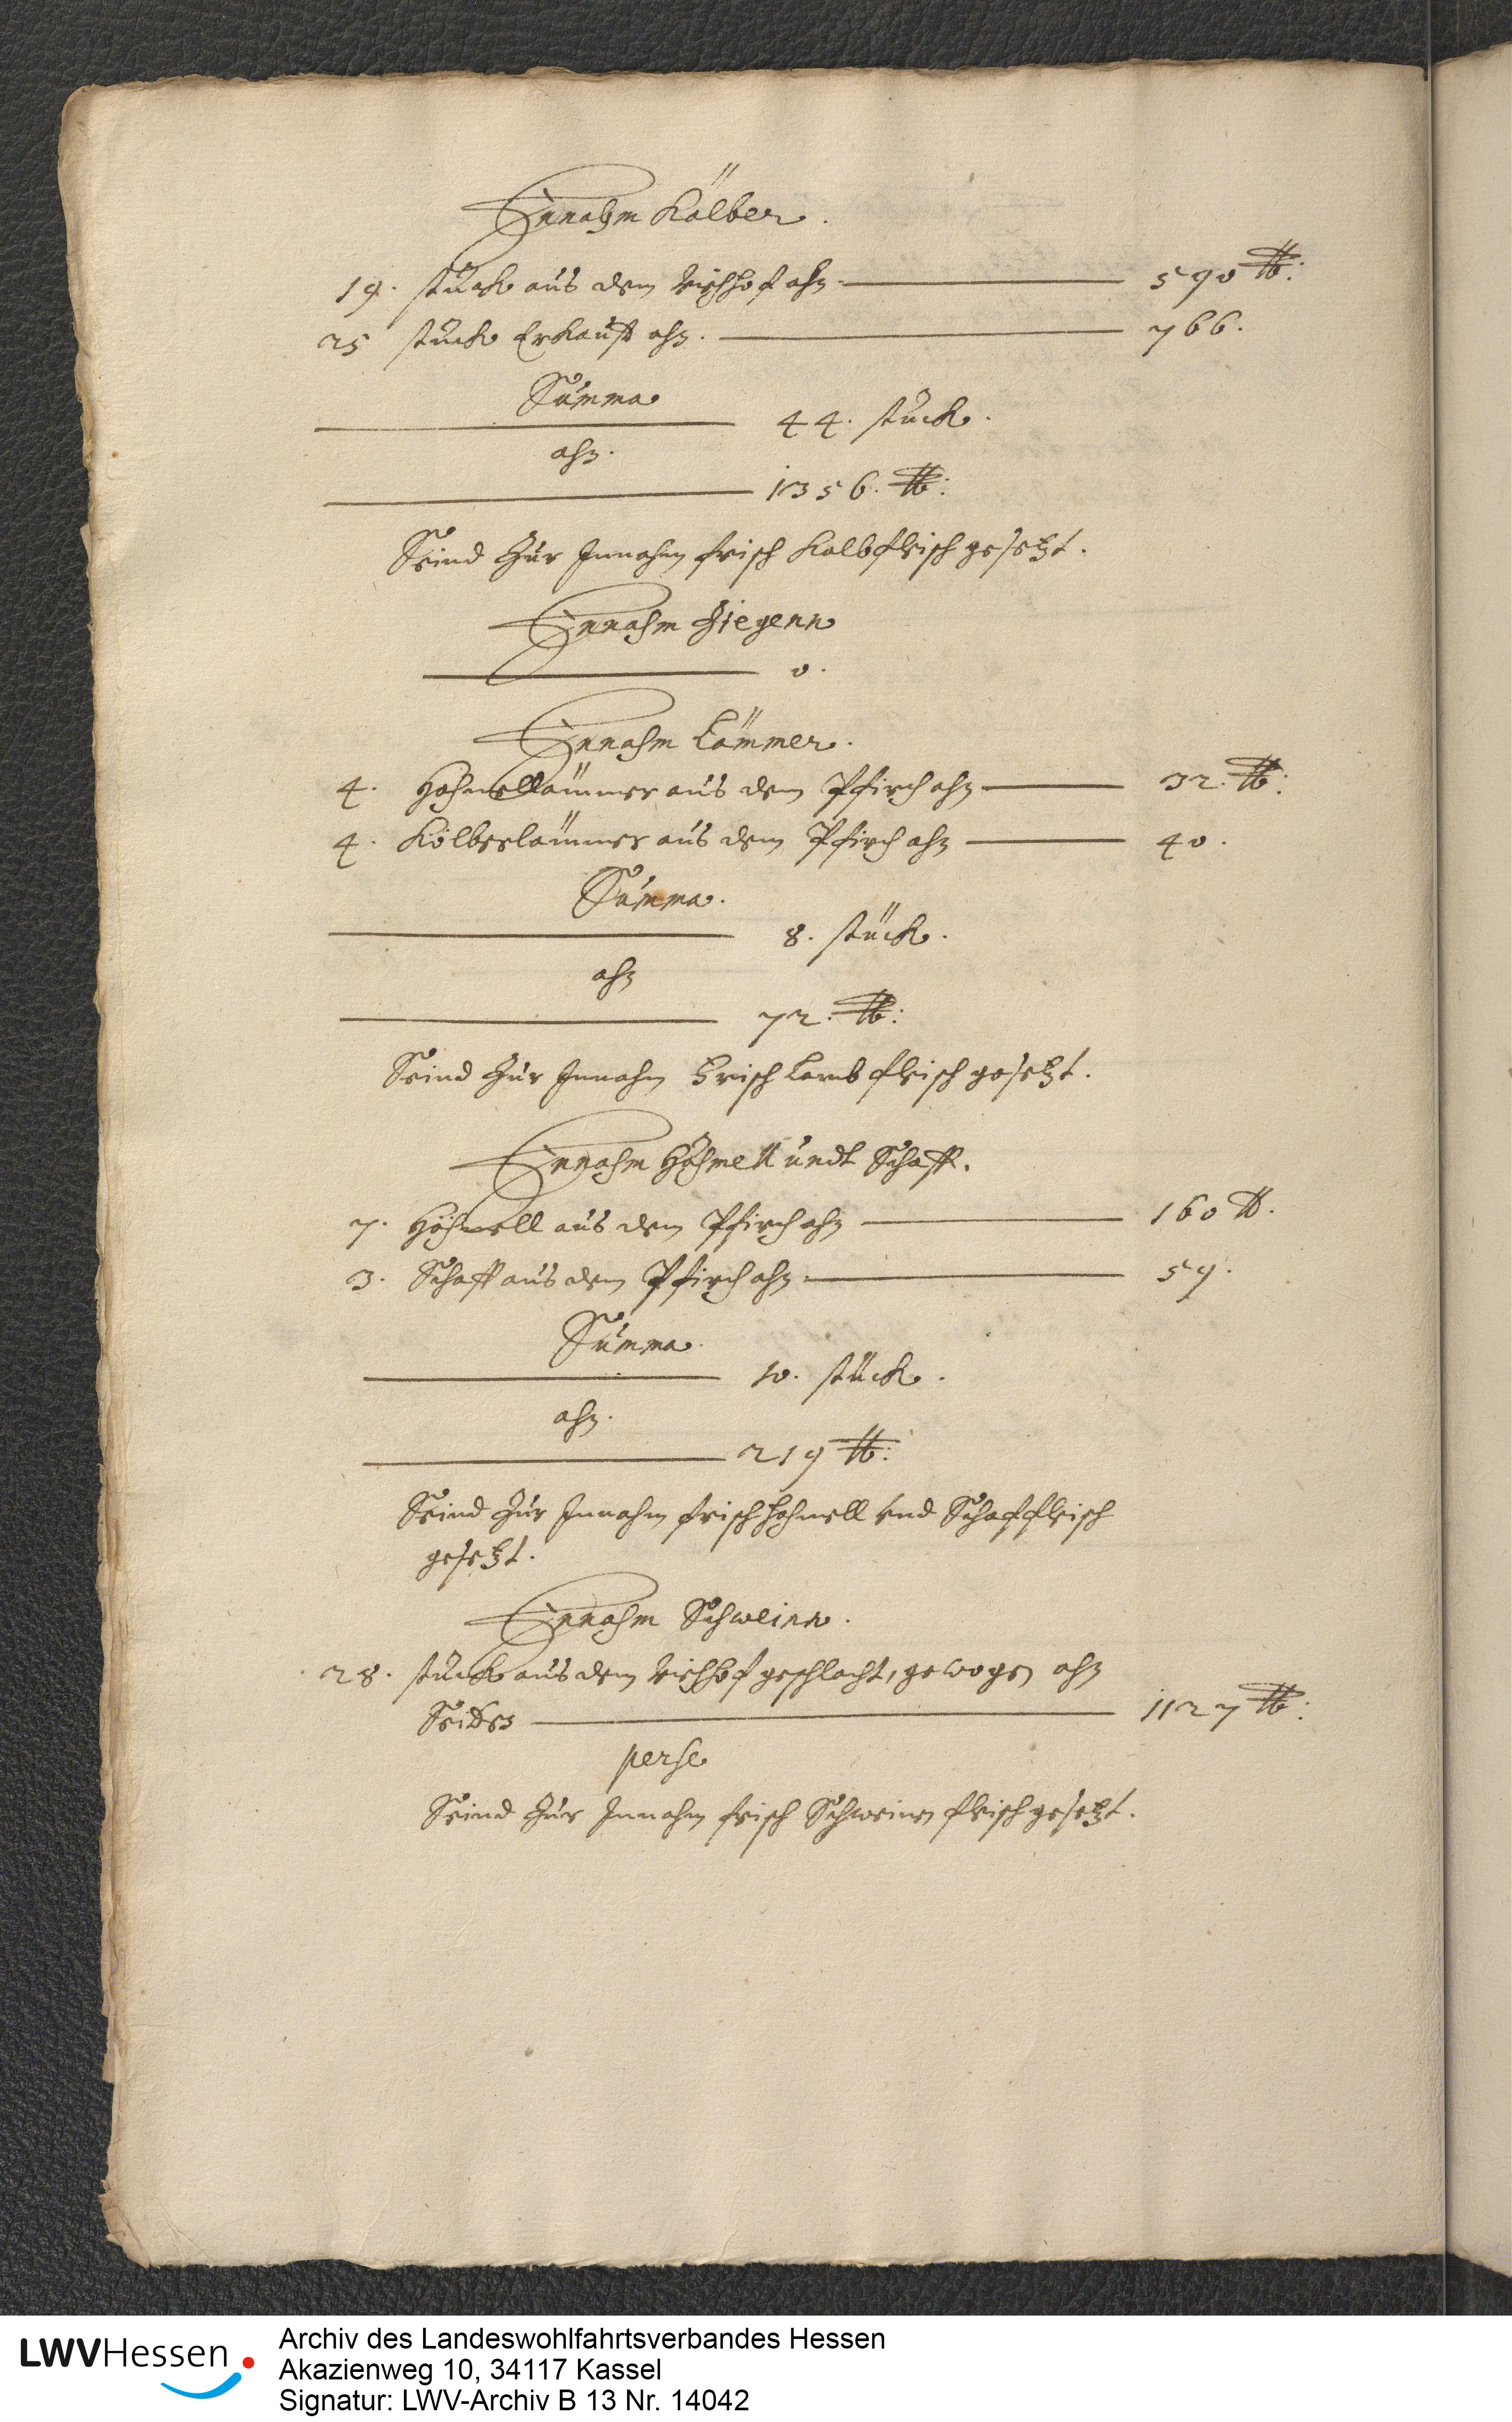 Innahm Kälber.
19. stück aus dem Viehhof ahn 590 ℔:
25 stück Erkaufft ahn. 766.
Summa
44. stück.
ahn.
1356. ℔:
Seind zur Innahm frisch Kalbfleisch gesetzt.
Innahm Ziegenn
0.
Innahm Lämmer.
4. Hähmellämmer aus dem Pfirch ahn 32. ℔:
4. Kilberlämmer aus dem Pfirch ahn 40.
Summa.
8. stück.
ahn
72. ℔:
Seind zur Innahm Frisch Lambfleisch gesetzt.
Innahm Hähmell undt Schaff.
7. Hähmell aus dem Pfirch ahn 160 ℔.
3. Schaff aus dem Pfirch ahn. 59.
Summa.
10. stück.
ahn.
219 ℔:
Seind zur Innahm frisch Hahmell vnd Schaffleisch
gesetzt.
Innahm Schweinn.
28. stück aus dem Viehhof geschlacht, gewogen ahn
1127 ℔:
perse
Seind zur Innahm frisch Schweinen fleisch gesetzt.
LWVHessen
Archiv des Landeswohlfahrtsverbandes Hessen
Akazienweg 10, 34117 Kassel
Signatur: LWV-Archiv B 13 Nr. 14042